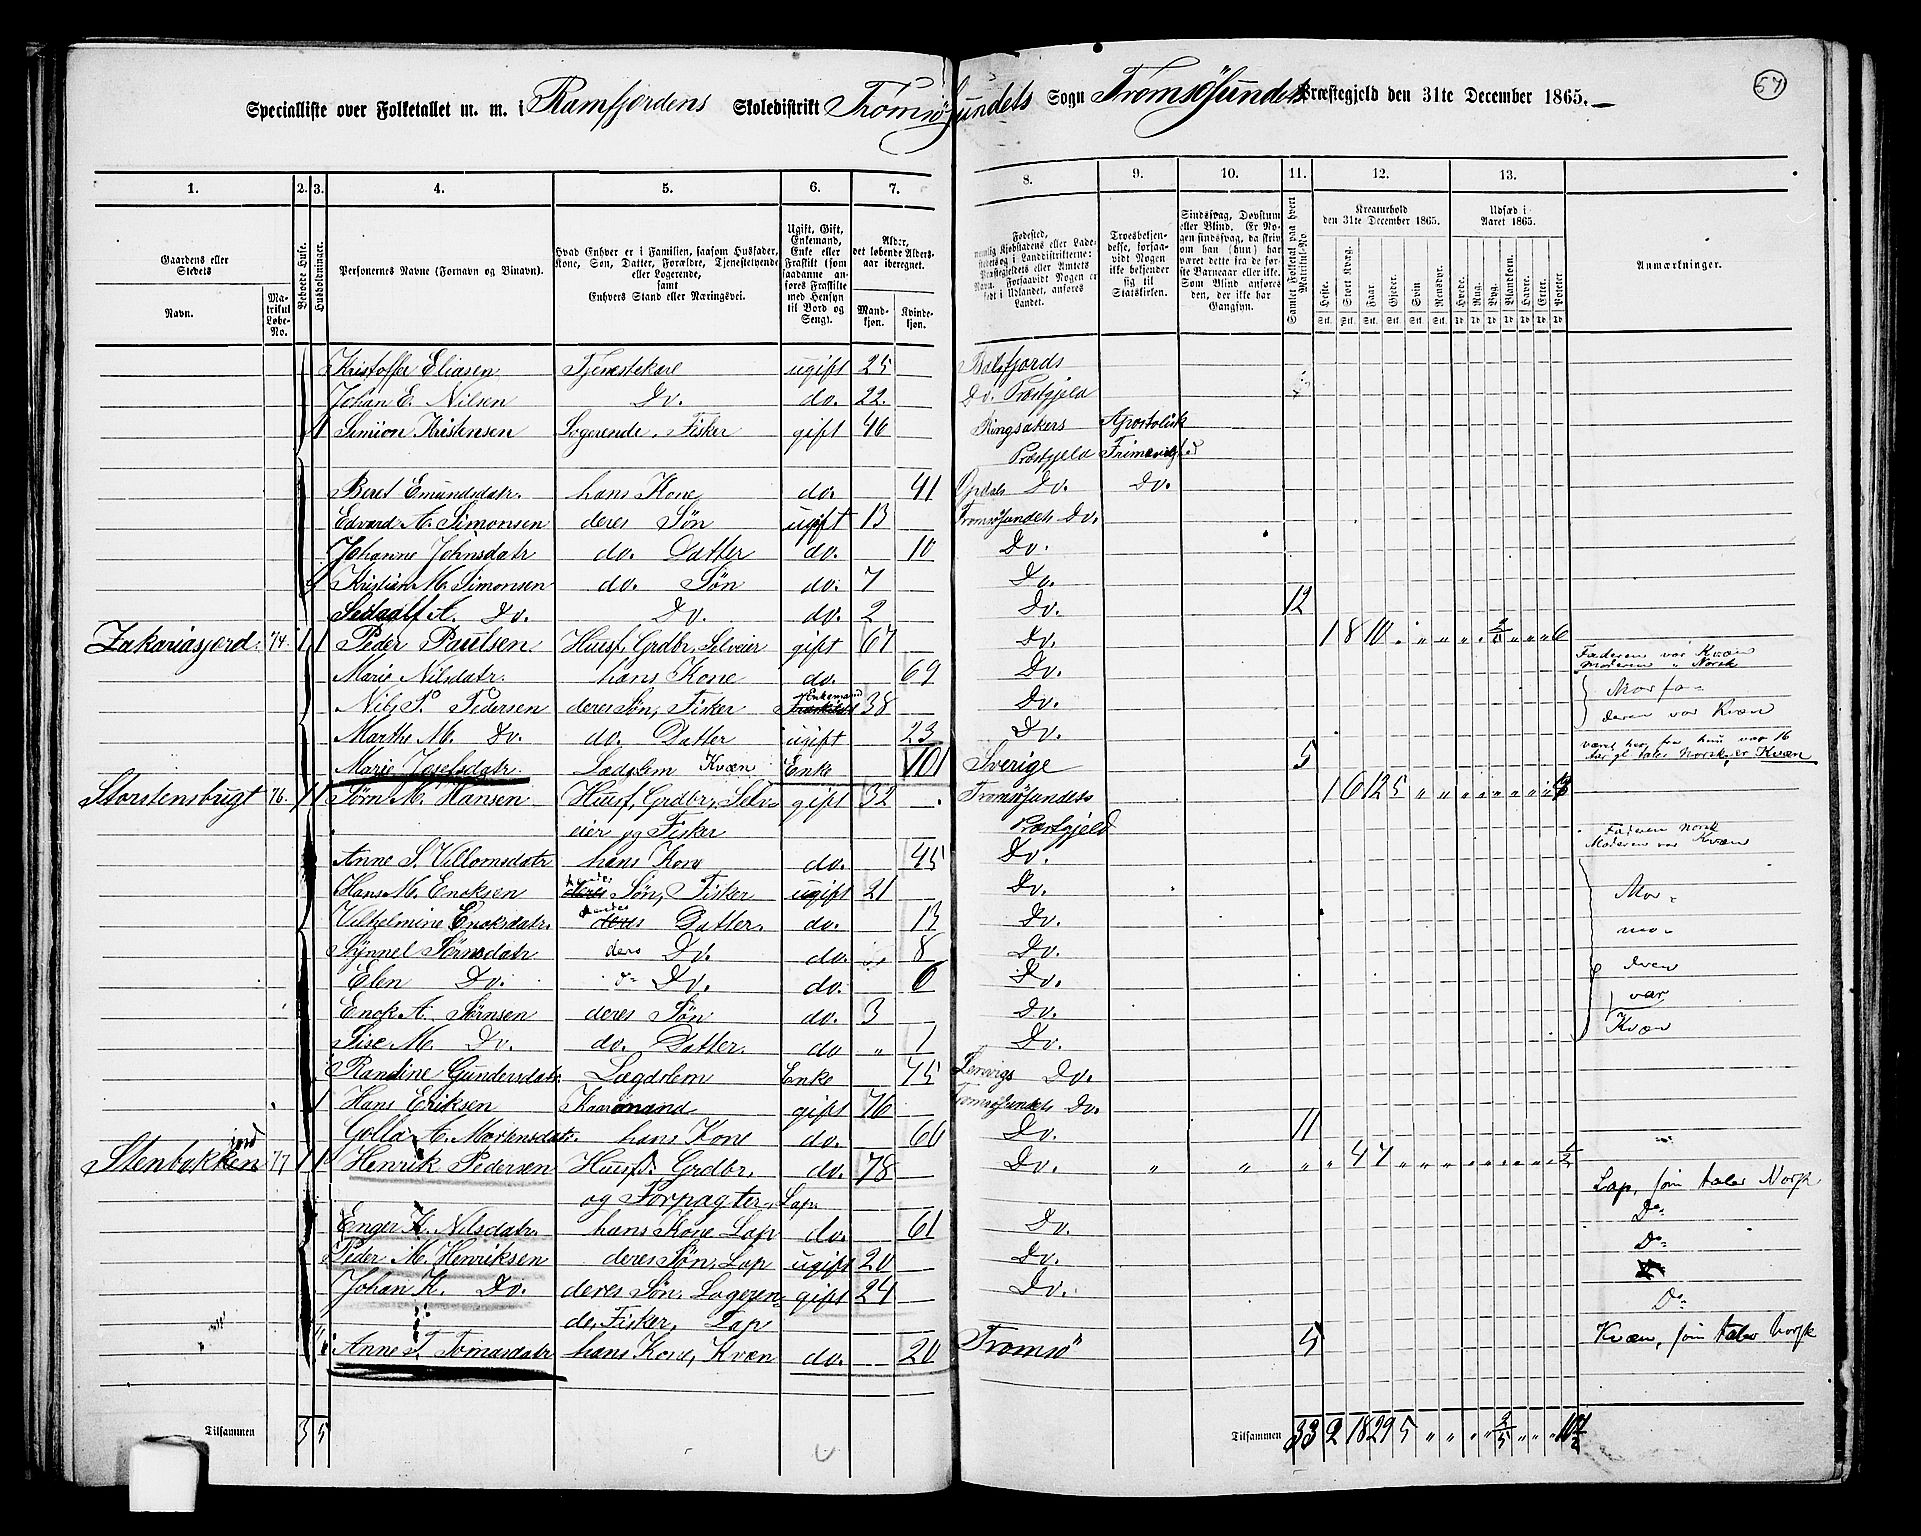 57
Specialliste over Folketallet m. m. i Ramfjordens Skoledistrikt Tromsøsundets Sogn Tromsøsundets Præstegjeld den 31te December 1865.
1. 2. 3. 4. 5. 6. 7. 8. 9. 10. 11. 12. 13.
Gaardens eller Stedets
Navn.
Matrikul Løbe-No.
Beboede Huse.
Husholdninger.
Personernes Navne (Fornavn og Binavn).
Hvad Enhver er i Familien, saasom Husfader, Kone, Søn, Datter, Forældre, Tjenestetyende eller Logerende, samt Enhvers Stand eller Næringsvei.
Ugift, Gift, Enkemand, Enke eller Fraskilt (som saadanne anføres Fraskilte med Hensyn til Bord og Seng).
Alder, det løbende Alders-aar iberegnet.
Mandkjøn.
Kvindekjøn.
Fødested,
Troesbekjendelse, forsaavidt Nogen ikke bekjender sig til Statskirken.
Sindssvag, Døvstum eller Blind. Er Nogen sindssvag, da skriv om han (hun) har været det fra de første Barneaar eller ikke. Som Blind anføres den, der ikke har Gangsyn.
Samlet Folketal paa hvert Matrikul-No.
Kreaturhold den 31te December 1865.
Udsæd i Aaret 1865.
Heste. Stort Kvæg. Faar. Gjeder. Svin. Rensdyr. Hvede. Rug. Byg. Blandkorn. Havre. Erter. Poteter.
Anmærkninger.
Kristoffer Eliasen Tjenestekarl ugift 25 Balsfjords
Johan E. Nilsen Do. do. 22. Do. Præstgjeld
1 Simion Kristensen Logerende, Fisker gift 46 Ringsakers Apostolisk
Præstgjeld Frimenighed
Beret Emundsdatr. hans Kone do. 41 Opdals Do. Do.
Edvard A. Simonsen deres Søn ugift 13 Tromsøsundets Do.
Johanne Johnsdatr do. Datter do. 10 Do.
Kristian M. Simonsen do. Søn do. 7 Do.
A. Do. Do. do. 2 Do. 12
Zakariasjord. 74. 1 1 Peder Paulsen Husf. Grdbr, Selveier gift 67 Do. 1 8 10 6
Faderen var Kvæn
Moderen " Norsk
Marie Nilsdatr. hans Kone do. 69 Do.
Nils P. Pedersen deres Søn, Fisker Enkemand 38 Do. Morfa-
deren var Kvæn
Marthe M. Do. do. Datter ugift 23 Do.
Marie Josefsdatr. Lædslem Kvæn Enke 101 Sverige 5
været her fra hun var 16
Aar gl. taler Norsk, er Kvæn
Storstensbugt 76. 1 1 Sørn M. Hansen Husf, Grdbr, Selv- gift 32 Tromsøsundets 1 6 12 5
eier og Fisker Præstgjeld
Faderen Norsk
Moderen var Kvæn
Anne S. Villomsdatr hans Kone do. 45 Do.
Hans M. Encksen Søn, Fisker ugift 21 Do. Mor-
Vilhelmine Encksdatr. Datter. do. 13 Do. mo-
Synnel Sørnsdatr ders Do. do. 8 Do.
Elen Do. Do. do. 6 Do. deren
Enck A. Sørnsen deres Søn do. 3 Do. var
Lise M. Do. do. Datter. do " 1 Do. Kvæn
Randine Gundersdatr. Lægdslem Enke 75 Lenvigs Do.
1 Hans Eriksen Kaarmand gift 76 Tromsøsundets Do.
A. Mortensdatr. hans Kone do. 66 Do. 11
Stenbakken jord 77 1 1 Henrik Pedersen Husf. Grdbr. do. 78 Do. " " " " 4 7 1/2
og Forpagter, Lap. Lap, som taler Norsk
Enger K. Nilsdatr. hans Kone Lap do. 61 Do. Do
Peder M. Henriksen deres Søn, Lap ugift 20 Do. Do
Johan K. Do. deres Søn, Logeren- gift 24 Do. Do
de, Fisker, Lap
Anne T. Tomasdatr hans Kone, Kvæn do. 20 Tromsø 5 Kvæn, som taler Norsk
Tilsammen 3 5
Tilsammen 33 2 18 29 5 " " " " 2/5 " " "